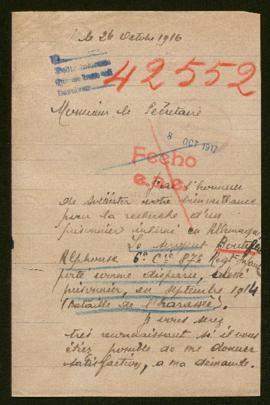 le 26 Octobre 1916
42552
Monsieur le Secrétaire
8 OCT 1917
J'ai l'honneur
de solliciter votre bienveillance
pour la recherche d'un
prisonnier interné en Allemagne
Alphonse 6e Cie 876 Regt Inf
porté comme disparu, blessé
prisonnier, en Septembre 1914
(bataille de
Je vous serai
très reconnaissant si il vous
était possible de me donner
satisfaction, a ma demande.